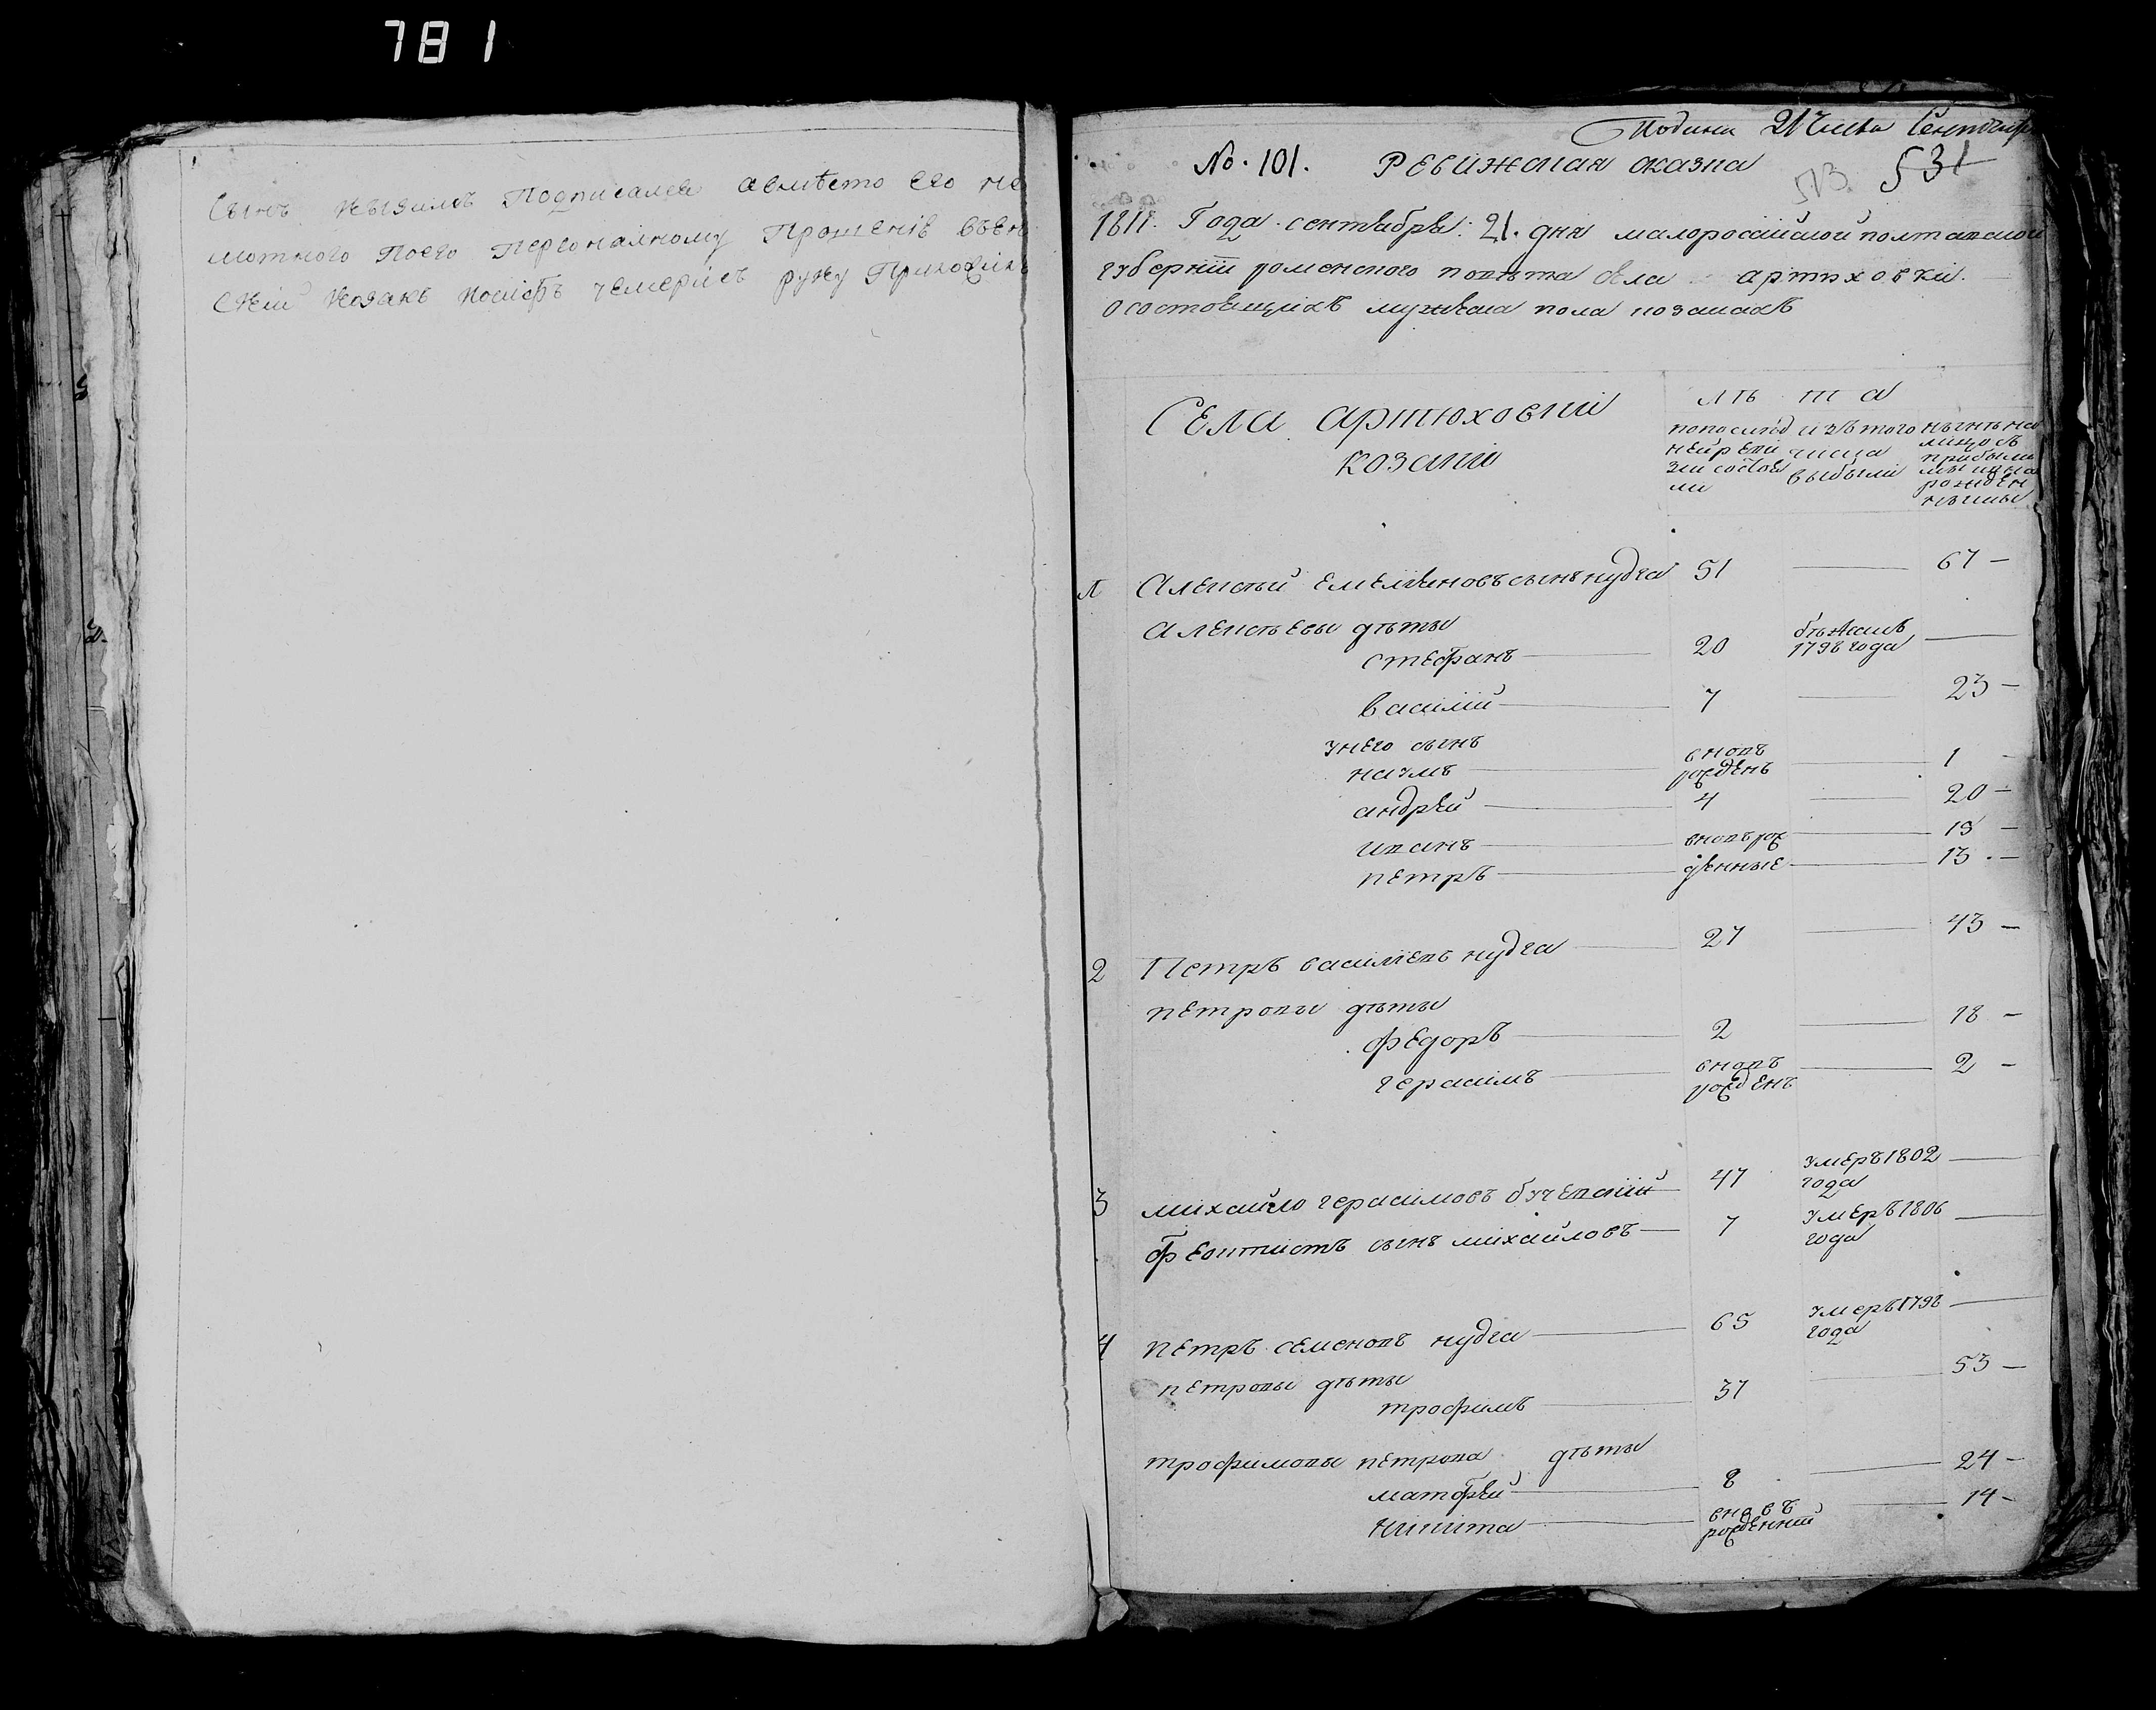 781
Сынъ Подписался авместо его не
мотного Поего Персоналному Прошенiю
Козакъ Иосифъ Чемерисъ руку Приложилъ
Подана 21 Числа Сентября
No. 101. Ревижская сказка
513. 531
1811. Года. сентября: 21. дня малоросiйской полтавской
губернiи роменского повѣта села артюховки.
о состоящихъ мужеска пола козакахъ
Села артюховки
козаки
лѣ та
по послѣд изъ того нынѣ на
ней реви числа лицо съ
зии состоя выбыли прибыли
ли мы и
рожден
ными
1 Алексѣй емеляновъ сынъ нудга 51 — 67 —
Алексѣевы дѣты
стефанъ — 20 бѣжалъ 1798 года —
василiй — 7 — 23 —
у него сынъ
наумъ — вновь рожденъ — 1 —
андрей — 4 — 20 —
иванъ — вновь рож — 15 —
петръ — денные — 13 . —
2 Петръ василiевъ нудга — 27 — 43 —
петровы дѣты
федоръ — 2 — 18 —
герасимъ — вновь рожденъ — 2 —
3 михайло герасимовъ бучевскiй — 47 умеръ 1802 года —
феоктистъ сынъ михайловъ — 7 умеръ 1806 года —
4 петръ семеновъ нудга — 65 умеръ 1798 года —
петровы дѣты
трофимъ — 37 — 53 —
трофимовы петрова дѣты
матфей — 8 — 24 —
никита — вновь рожденнiй — 14 —